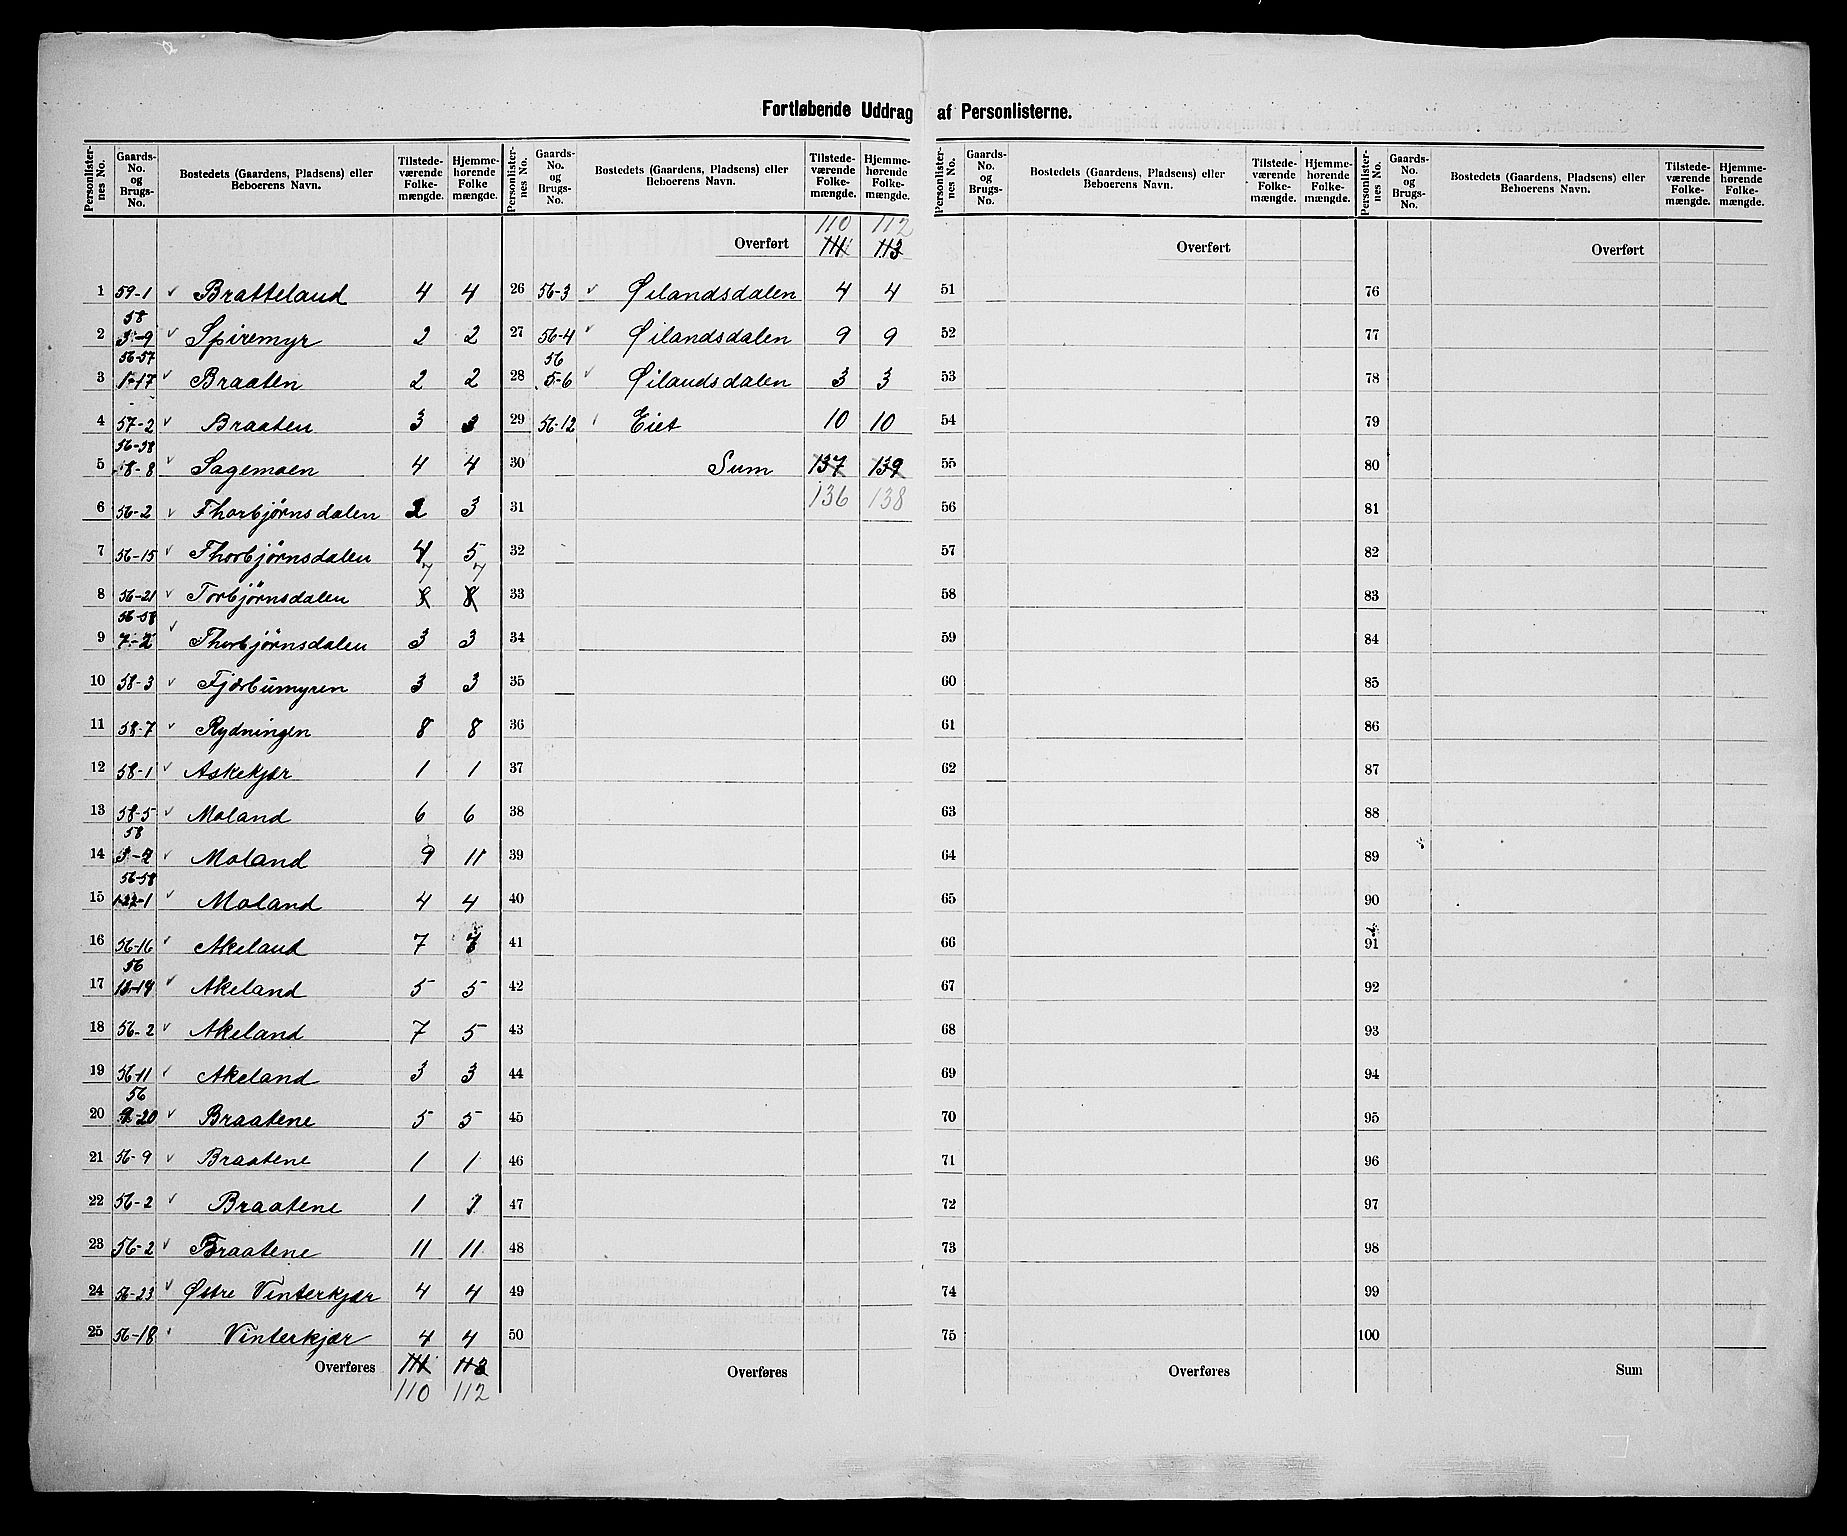 Fortløbende Uddrag af Personlisterne.
Personlisternes No. Gaards-No. og Brugs-No. Bostedets (Gaardens, Pladsens) eller Beboerens Navn. Tilstedeværende Folkemængde. Hjemmehørende Folkemængde.
1 59-1 v Bratteland 4 4
2 58 3-9 v Spiremyr 2 2
3 56-57 1-17 v Braaten 2 2
4 57-2 v Braaten 3 3
5 56-58 18-8 v Sagemoen 4 4
6 56-2 v Thorbjørnsdalen 2 3
7 56-15 v Thorbjørnsdalen 4 5
8 56-21 v Torbjørnsdalen 8 7 8 7
9 56-58 7-2 v Thorbjørnsdalen 3 3
10 58-3 v Fjærbumyren 3 3
11 58-7 v Rydningen 8 8
12 58-1 v Askekjær 1 1
13 58-5 v Moland 6 6
14 58 3-2 v Moland 9 11
15 56-58 v Moland 4 4
16 56-16 v Akeland 7 7
17 56 13-14 v Akeland 5 5
18 56-2 v Akeland 7 5
19 56-11 v Akeland 3 3
20 56 9-20 v Braatene 5 5
21 56-9 v Braatene 1 1
22 56-2 v Braatene 1 1
23 56-2 v Braatene 11 11
24 56-23 v Østre Vinterkjær 4 4
25 56-18 Vinterkjær 4 4
Overføres 111 113
110 112
Personlisternes No. Gaards-No. og Brugs-No. Bostedets (Gaardens, Pladsens) eller Beboerens Navn. Tilstedeværende Folkemængde. Hjemmehørende Folkemængde.
110 112
Overført 111 113
26 56-3 v Øilandsdalen 4 4
27 56-4 v Øilandsdalen 9 9
28 56 5-6 v Øilandsdalen 3 3
29 56-12 Eiet 10 10
30 Sum 137 139
31 136 138
32
33
34
35
36
37
38
39
40
41
42
43
44
45
46
47
48
49
50
Overføres
Personlisternes No. Gaards-No. og Brugs-No. Bostedets (Gaardens, Pladsens) eller Beboerens Navn. Tilstedeværende Folkemængde. Hjemmehørende Folkemængde.
Overført
51
52
53
54
55
56
57
58
59
60
61
62
63
64
65
66
67
68
69
70
71
72
73
74
75
Overføres
Personlisternes No. Gaards-No. og Brugs-No. Bostedets (Gaardens, Pladsens) eller Beboerens Navn. Tilstedeværende Folkemængde. Hjemmehørende Folkemængde.
Overført
76
77
78
79
80
81
82
83
84
85
86
87
88
89
90
91
92
93
94
95
96
97
98
99
100
Sum